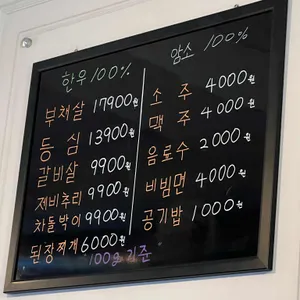 한우 100%
부채살 17900원
등심 13900원
갈비살 9900원
제비추리 9900원
차돌박이 9900원
된장찌개 6000원
100g 기준
암소 100%
소주 4000원
맥주 4000원
음료수 2000원
비빔면 4000원
공기밥 1000원